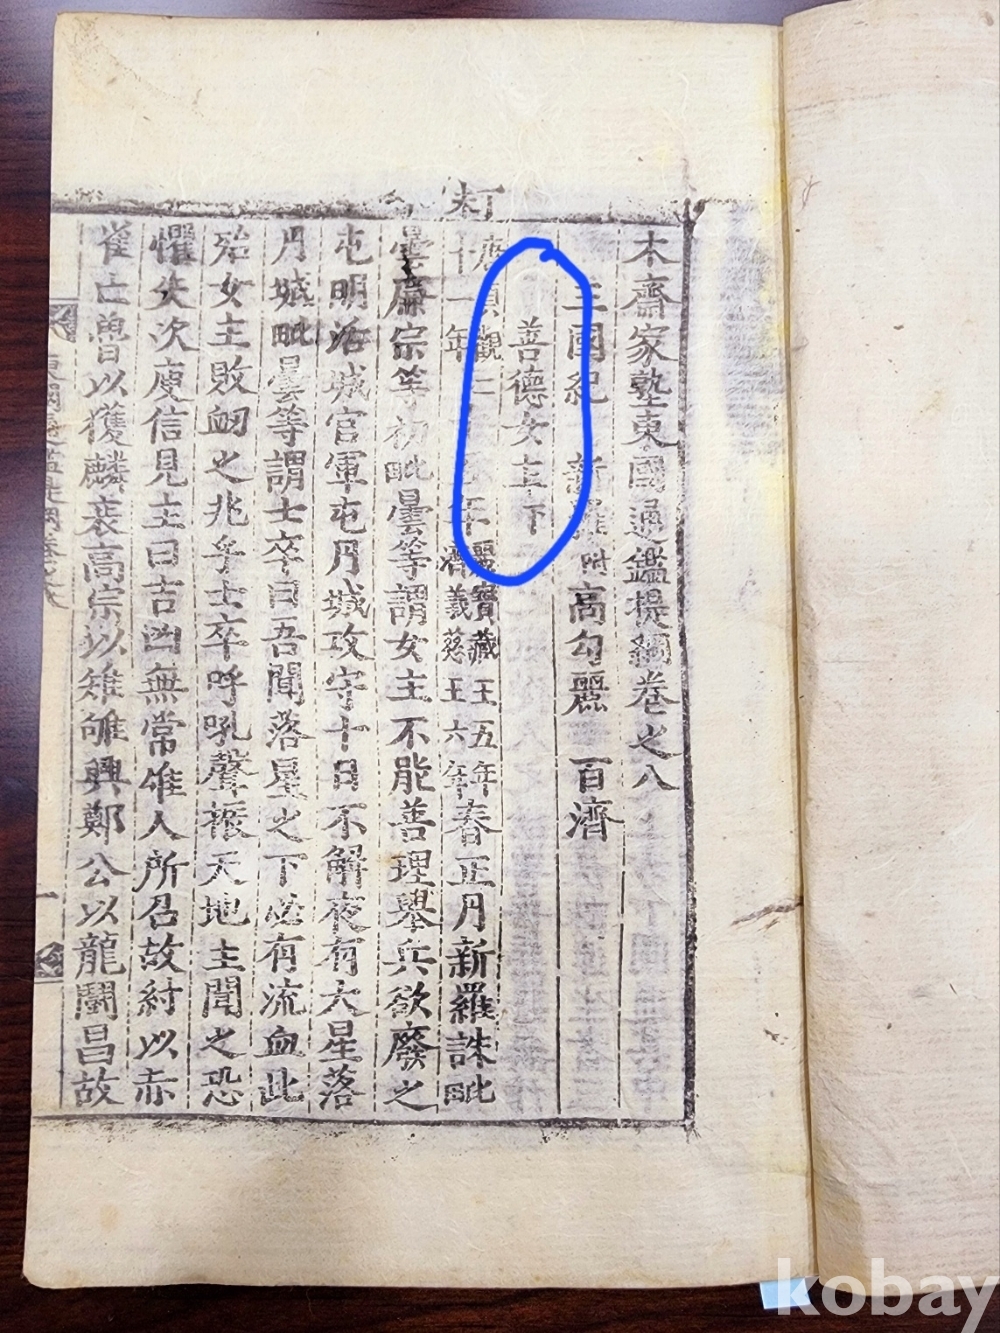 木齋家塾東國通鑑提綱卷之八
三國紀 新羅 附 高勾麗 百濟
善德女主下
丁未
唐貞觀二
十一年
年
麗寶藏王五年
濟義慈王六年
春正月新羅誅毗
曇廉宗等初毗曇等謂女主不能善理舉兵欲廢之
屯明活城官軍屯月城攻守十日不解夜有大星落
月城毗曇等謂士卒曰吾聞落星之下必有流血此
殆女主敗衂之兆乎士卒呼吼聲振天地主聞之恐
懼失次庾信見主曰吉凶無常惟人所召故紂以赤
雀亡魯以獲麟衰高宗以雉雊興鄭公以龍鬪昌故
一
kobay